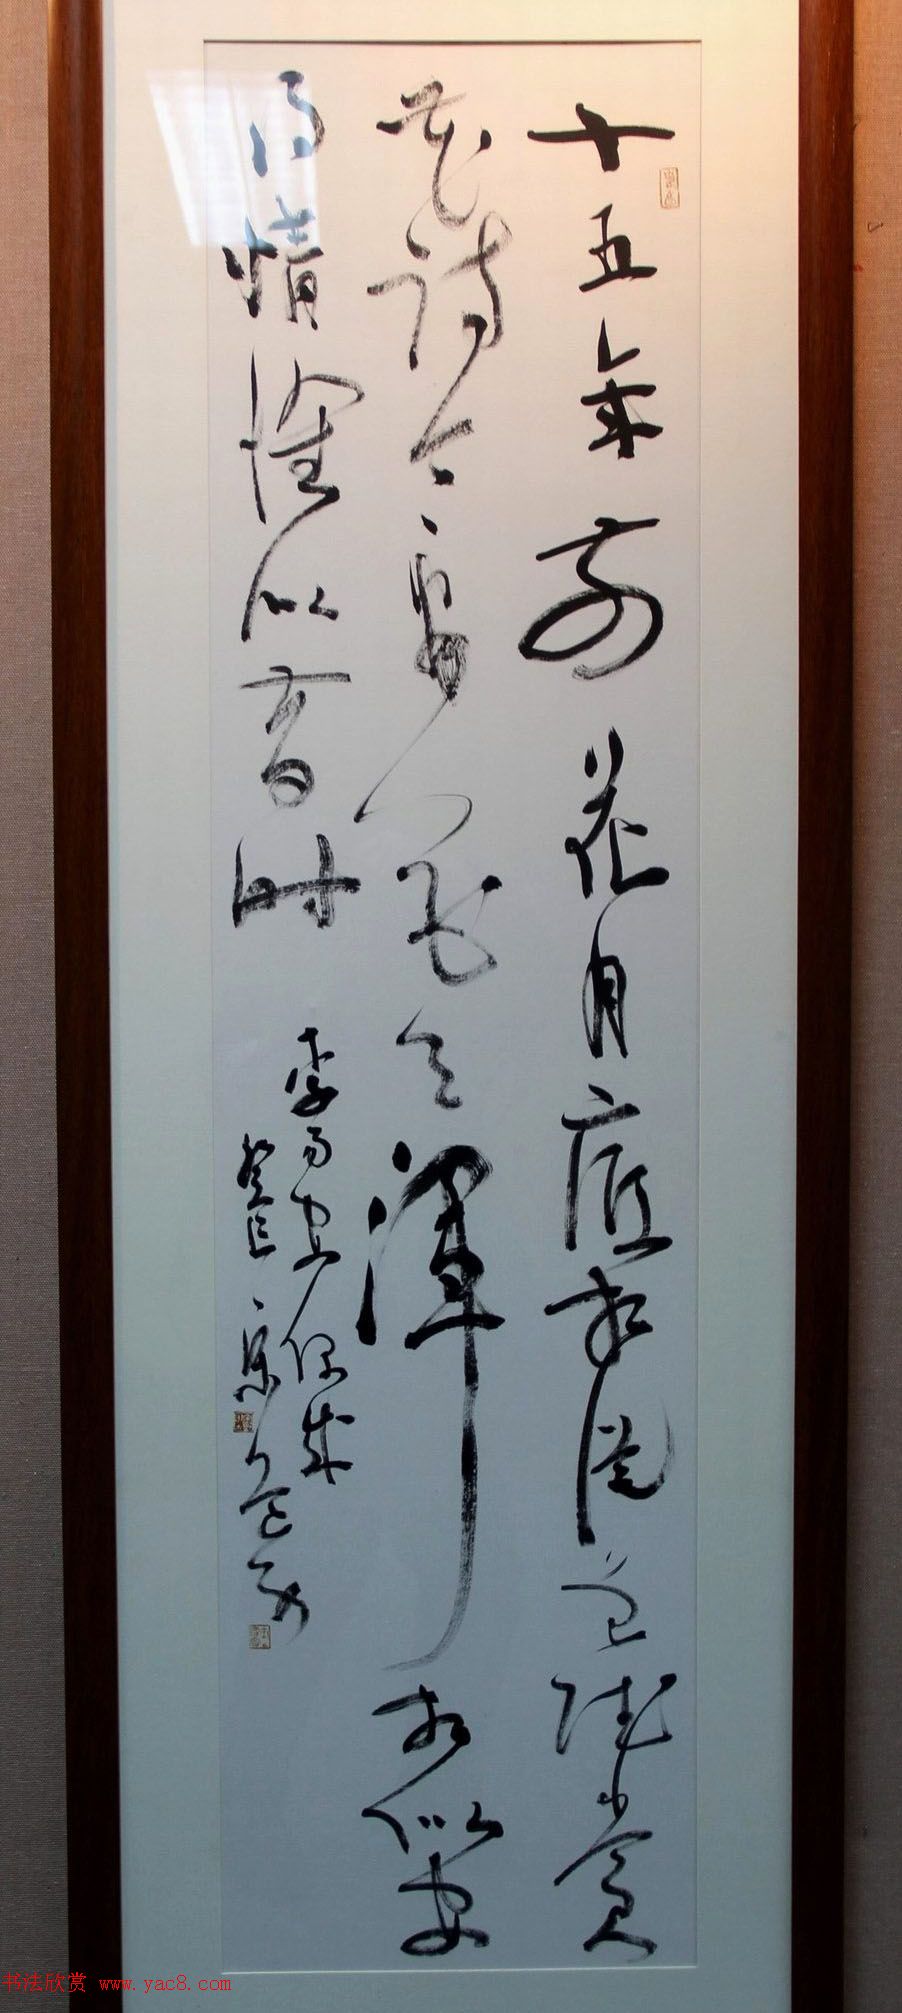 十五年前花月底相从曾赋赏
花诗今看花月浑相似安
得情怀似昔时
李易安偶成
癸巳
书法欣赏 www.yac8.com